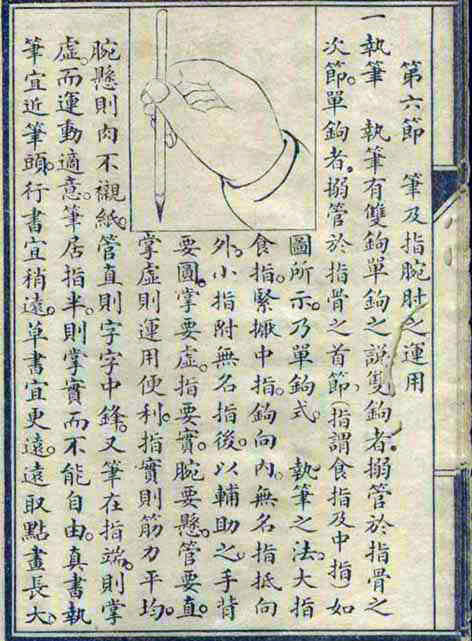 第六節　筆及指腕肘之運用
一 執筆　執筆有雙鉤單鉤之說雙鉤者。搦管於指骨之
次節。單鉤者。搦管於指骨之首節、(指謂食指及中指如
圖所示。乃單鉤式　執筆之法。大指
食指。緊擫中指。鉤向內。無名指抵向
外。小指附無名指後。以輔助之。手背
要圓。掌要虛。指要實。腕要懸。管要直。
掌虛則運用便利。指實則筋力平均。
腕懸則肉不襯紙。管直則字字中鋒。又筆在指端。則掌
虛而運動適意。筆居指半。則掌實而不能自由。真書執
筆宜近筆頭。行書宜稍遠。草書宜更遠。遠取點畫長大。